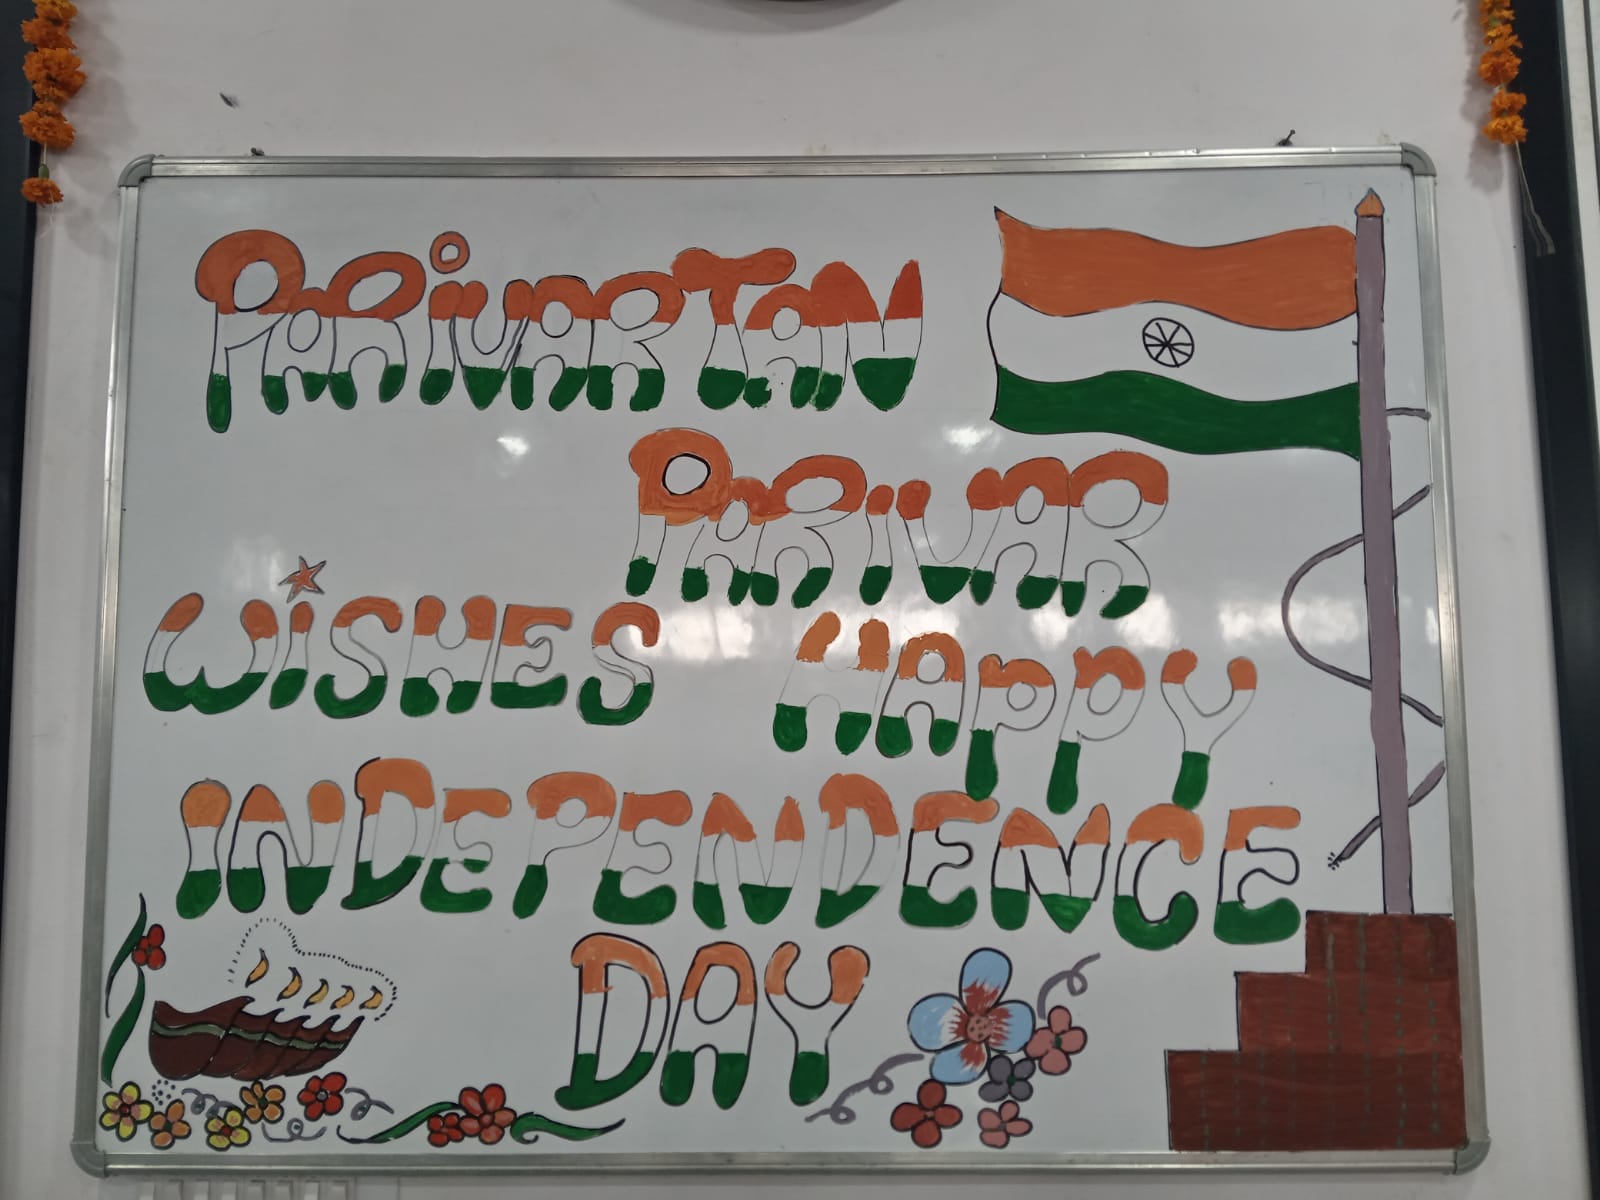 PARiVARTAN
PARIVAR
WiSHES HAPPY
INDEPENDENCE
DAY